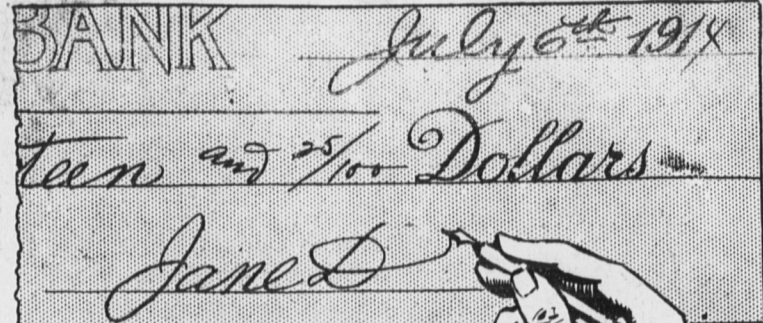 BANK July 6th 1914
teen and 25/100 Dollars
Jane D